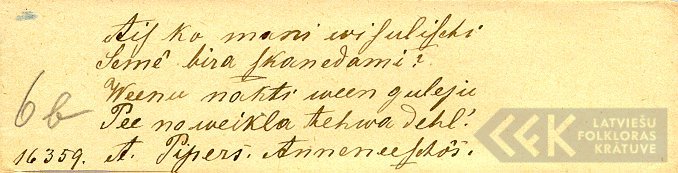 Aiſ ko mani wiſuliſchi
Semê bira ſkanedami?
Weenu nakti ween guleju
Pee noweikla tehwa dehl!
6b
16359. A. Pipers. Anneneeſchôs.
LATVIEŠU
FOLKLORAS
KRĀTUVE